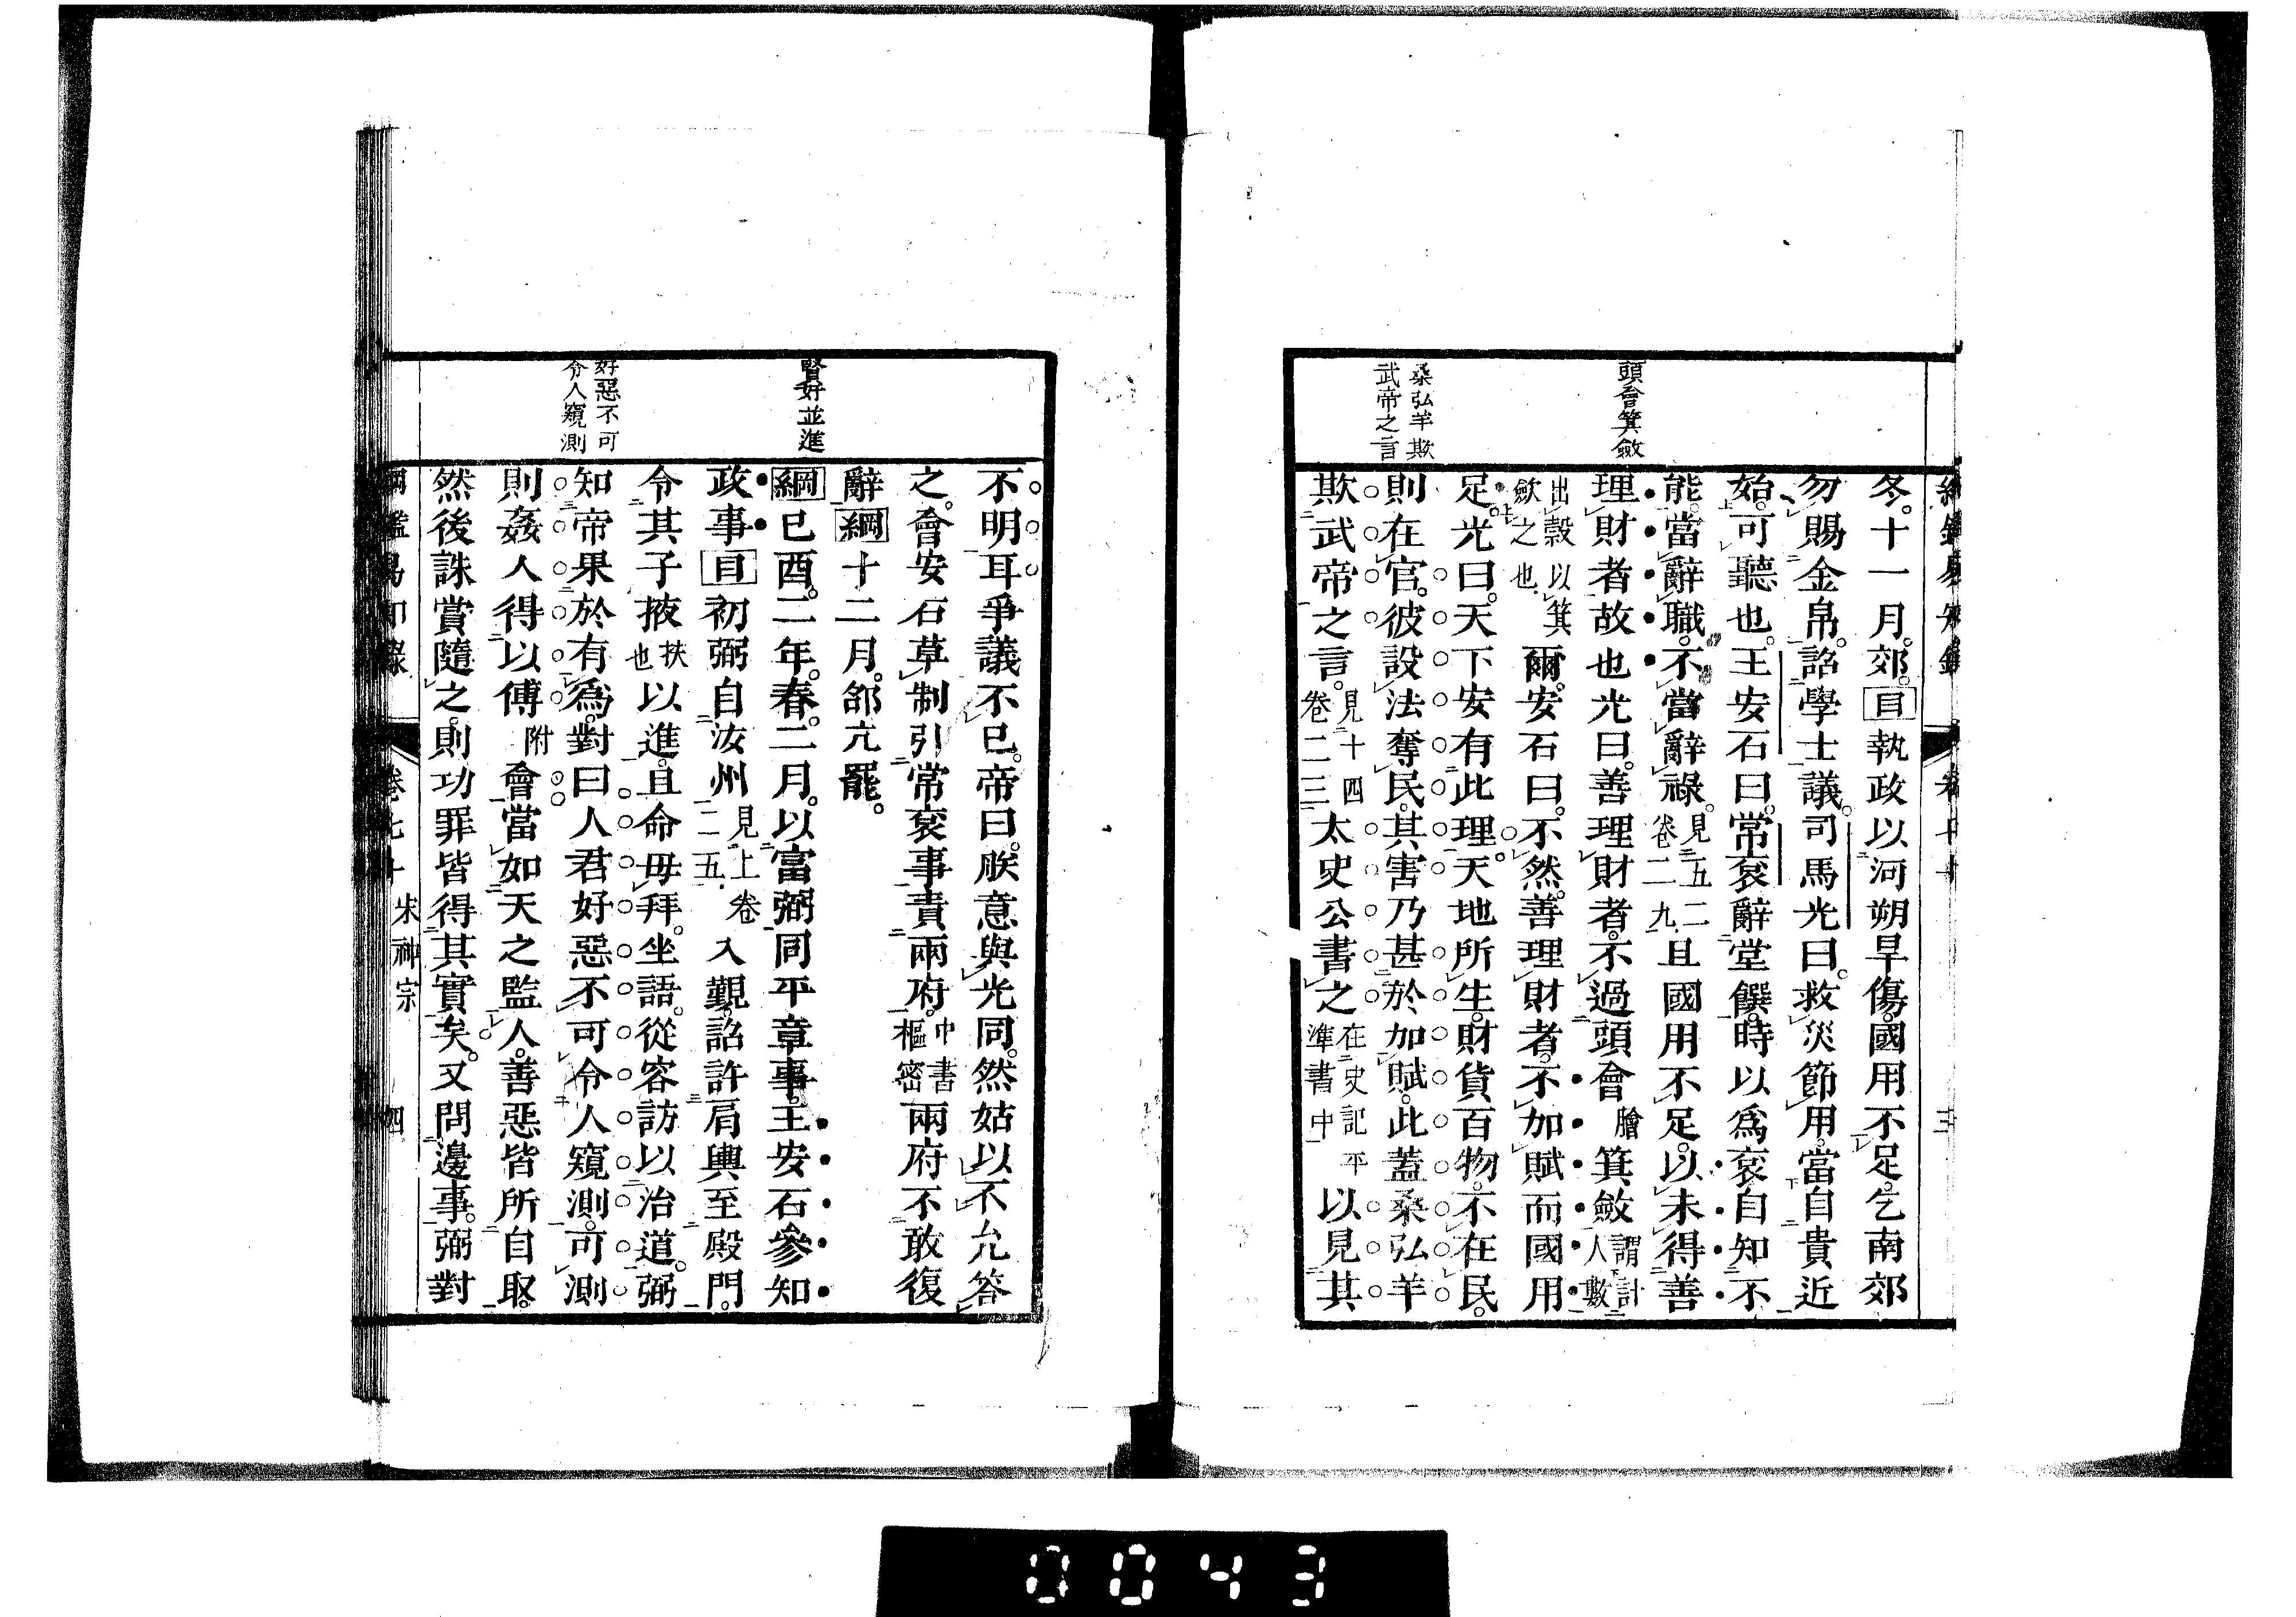 頭會箕斂
桑弘羊欺
武帝之言
冬十一月郊目執政以河朔旱傷國用不足乞南郊
勿賜金帛詔學士議司馬光曰救災節用當自貴近
始可聽也王安石曰常袞辭堂饌時以為袞自知不
能當辭職不當辭祿見五二卷二九且國用不足以未得善
理財者故也光曰善理財者不過頭會膾箕斂謂計人數
出穀以箕斂之也爾安石曰不然善理財者不加賦而國用
足光曰天下安有此理天地所生財貨百物不在民
則在官彼設法奪民其害乃甚於加賦此蓋桑弘羊
欺武帝之言見十四卷二三太史公書之在史記平準書中以見其
賢奸並進
好惡不可
令人窺測
不明耳爭議不已帝曰朕意與光同然姑以不允答
之會安石草制引常袞事責兩府中書樞密兩府不敢復
辭綱十二月郃亢罷
綱己酉二年春二月以富弼同平章事王安石參知
政事目初弼自汝州見上卷二五入覲詔許肩輿至殿門
令其子掖扶也以進且命毋拜坐語從容訪以治道弼
知帝果於有為對曰人君好惡不可令人窺測可測
則姦人得以傅附會當如天之監人善惡皆所自取
然後誅賞隨之則功罪皆得其實矣又問邊事弼對
綱鑑易知錄 卷七十 宋神宗 四